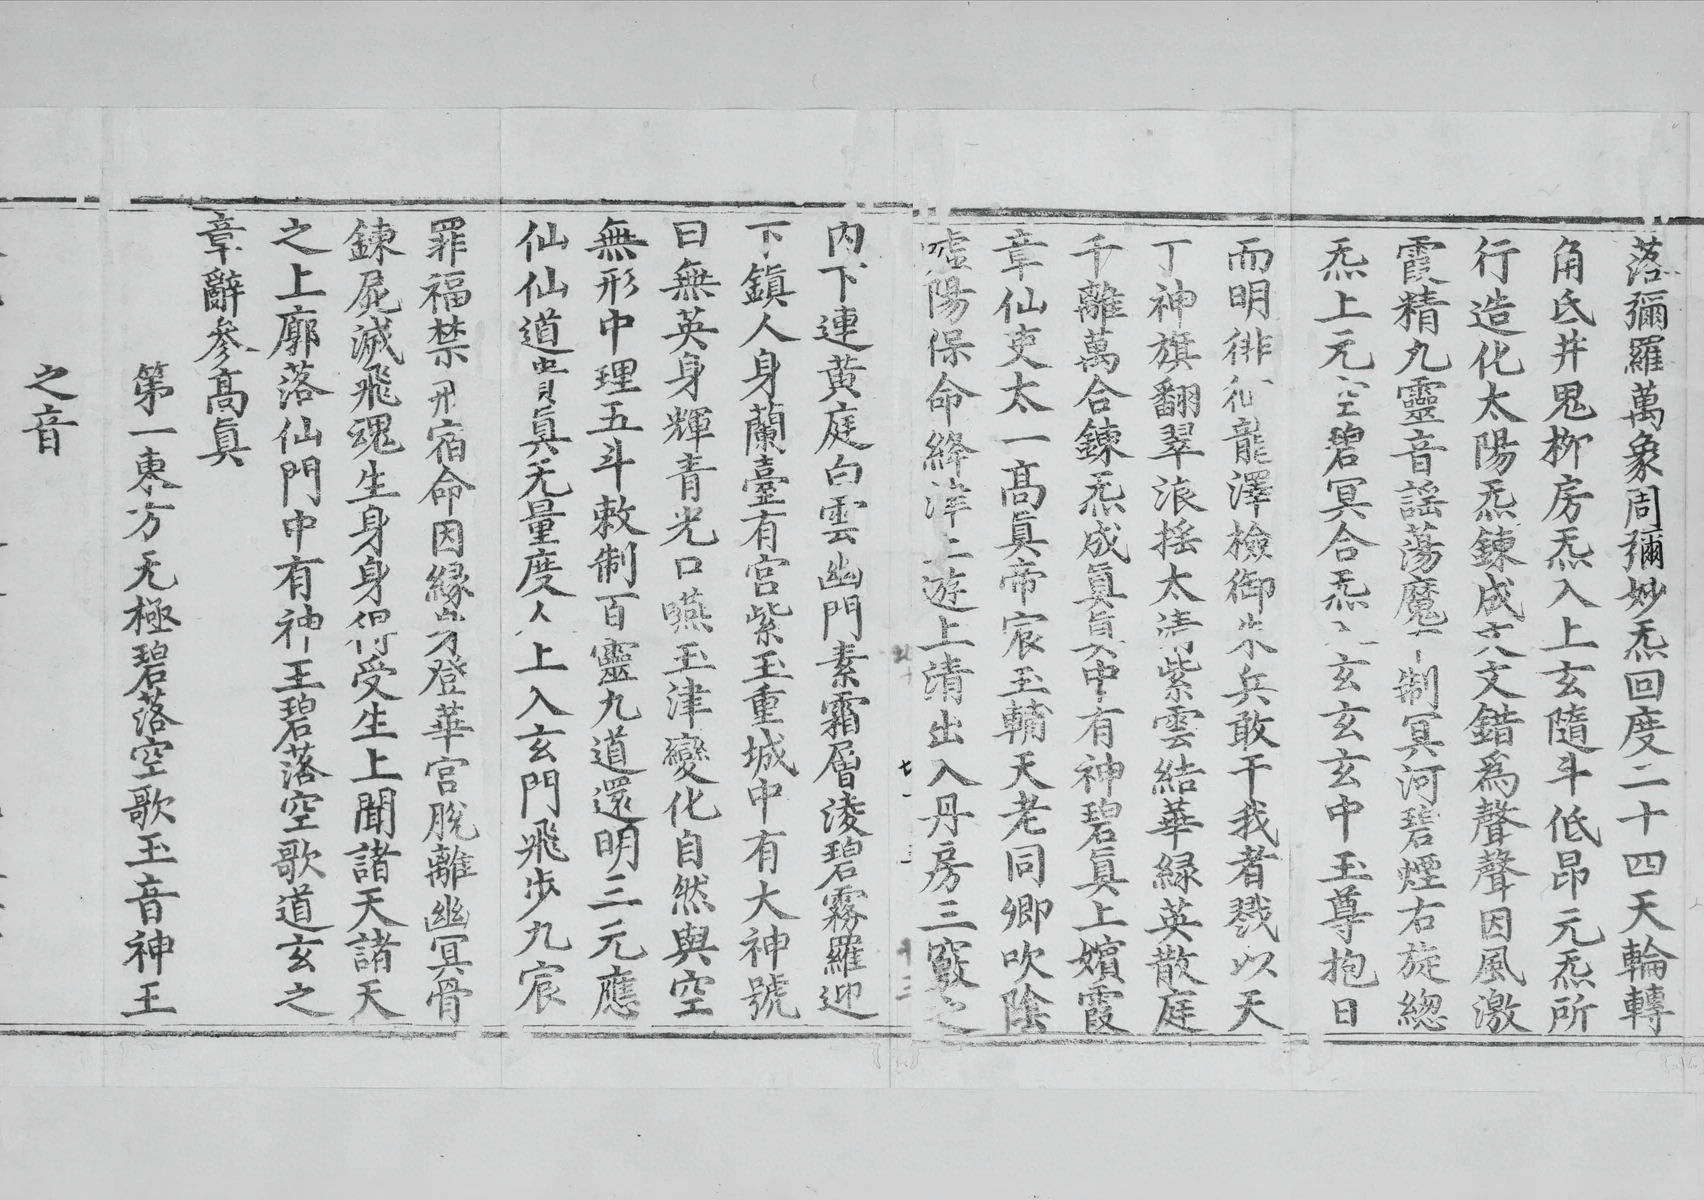 落彌羅萬象周彌妙炁回度二十四天輪轉
角氐井鬼柳房炁入上玄隨斗低昂元炁所
行造化太陽炁鍊成天文錯爲聲聲因風激
霞精九靈音謡蕩魔 制冥河碧煙右旋總
炁上元空碧冥合炁 玄玄玄中玉尊抱日
而明徘徊龍澤檢御 兵敢干我者戮以天
丁神旗翻翠滾摇太清紫雲結華緑英散庭
千離萬合鍊炁成眞眞中有神碧眞上嬪霞
章仙吏太一高眞帝宸玉輔天老同卿吹陰
噓陽保命絳津上遊上清出入丹房三竅之
内下連黄庭白雲幽門素霜層淩碧霧羅迎
下鎮人身蘭臺有宫紫玉重城中有大神號
曰無英身輝青光口嚥玉津變化自然與空
無形中理五斗敕制百靈九道還明三元應
仙仙道貴眞无量度人上入玄門飛步九宸
罪福禁 宿命因緣 登華宫脱離幽冥骨
鍊屍滅飛魂生身身得受生上聞諸天諸天
之上廓落仙門中有神王碧落空歌道玄之
章辭參高眞
第一東方无極碧落空歌玉音神王
之音